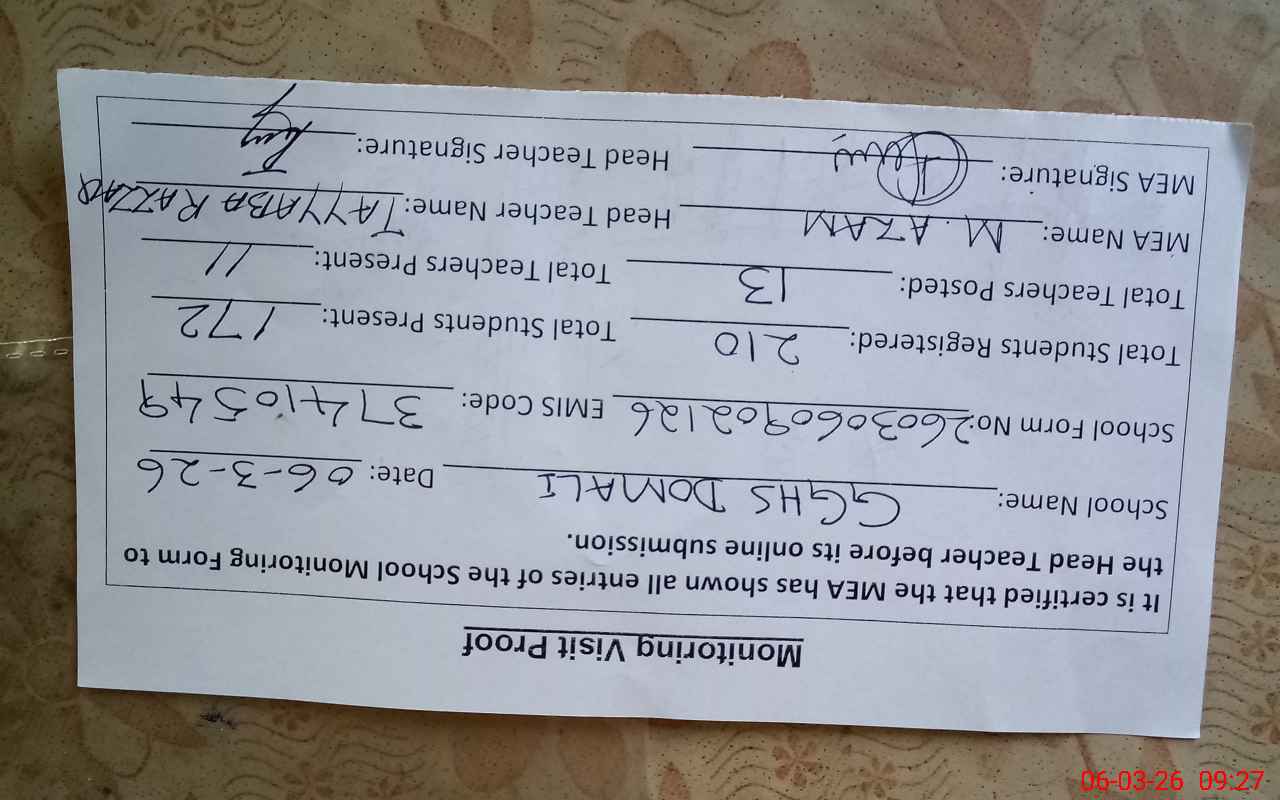 Monitoring Visit Proof
It is certified that the MEA has shown all entries of the School Monitoring Form to
the Head Teacher before its online submission.
School Name: GGHS DOMALI Date: 06-3-26
School Form No: 2603060902126 EMIS Code: 37410549
Total Students Registered: 210 Total Students Present: 172
Total Teachers Posted: 13 Total Teachers Present: 11
MEA Name: M. AZAM Head Teacher Name: TAYYABA RAZZAQ
MEA Signature: Head Teacher Signature:
06-03-26 09:27